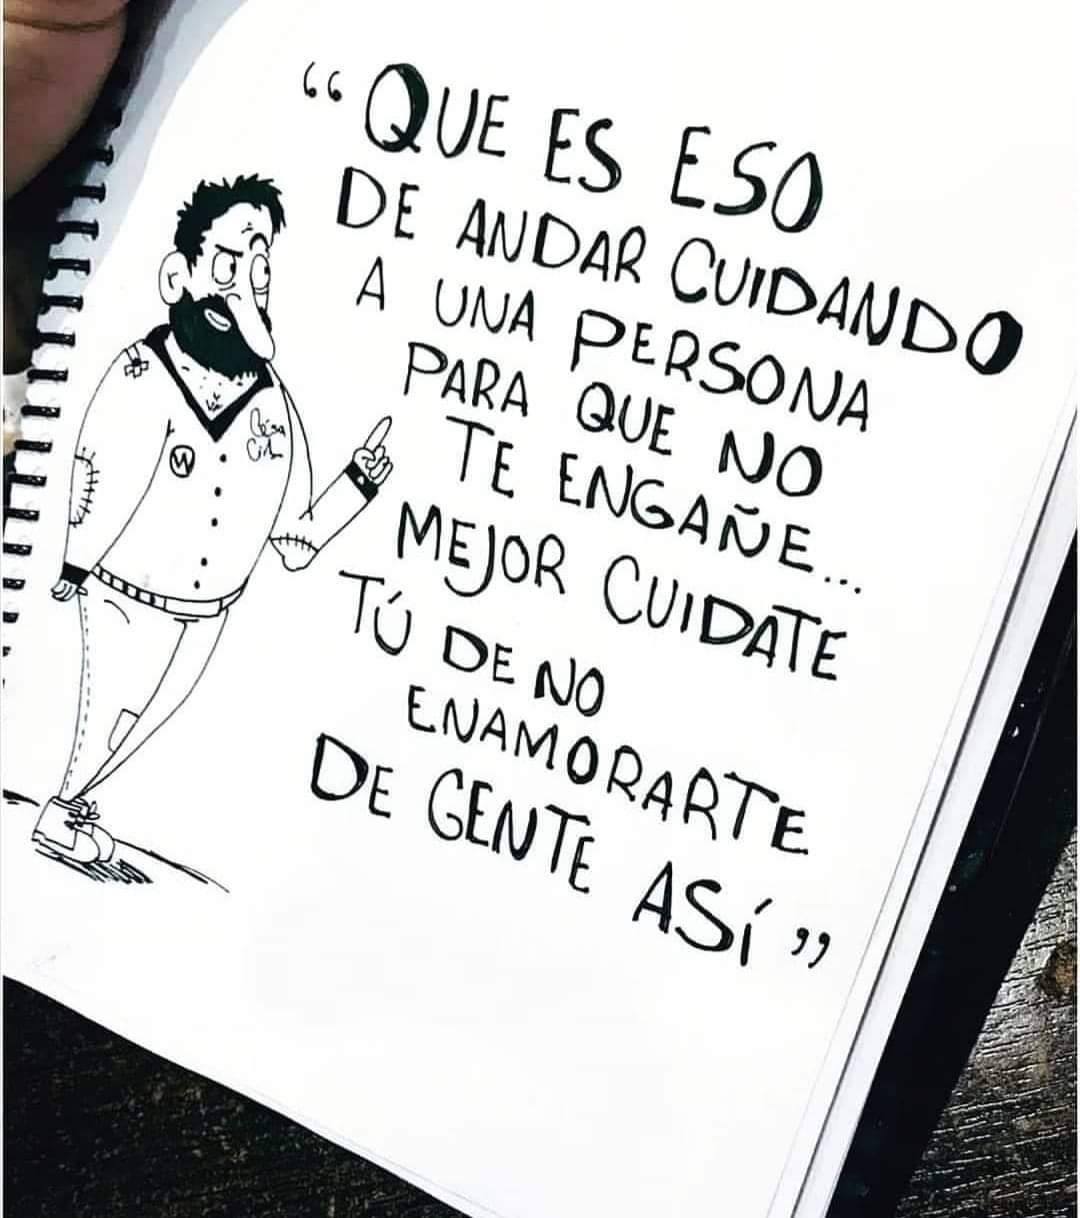 “QUE ES ESO
DE ANDAR CUIDANDO
A UNA PERSONA
PARA QUE NO
TE ENGAÑE...
MEJOR CUIDATE
TÚ DE NO
ENAMORARTE
DE GENTE ASÍ”
W